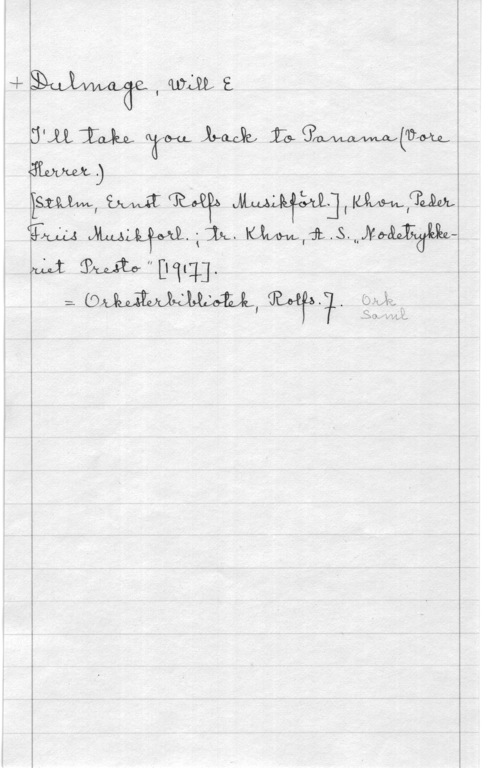 + Dulmage, Will E
I'll take you back to Panama (Vore
Herrer.)
[Sthlm, Ernst Rolfs Musikförl.], Khvn, Peder
Friis Musikforl.; tr. Khvn, A.S. „Nodetrykke-
riet Presto" [1917].
= Orkesterbibliotek, Rolfs. 7. Ork
Saml